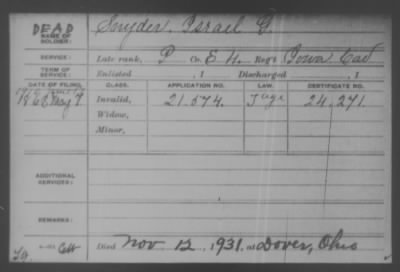 DEAD
NAME OF SOLDIER:
Snyder, Israel G.
SERVICE:
Late rank, P Co. E 4, Reg't Iowa Cav
TERM OF SERVICE:
Enlisted , 1 Discharged , 1
DATE OF FILING. CLASS. APPLICATION NO. LAW. CERTIFICATE NO.
Invalid, 24,271.
Widow,
Minor,
ADDITIONAL SERVICES:
REMARKS:
Died Nov 12, 1931, at Dover, Ohio